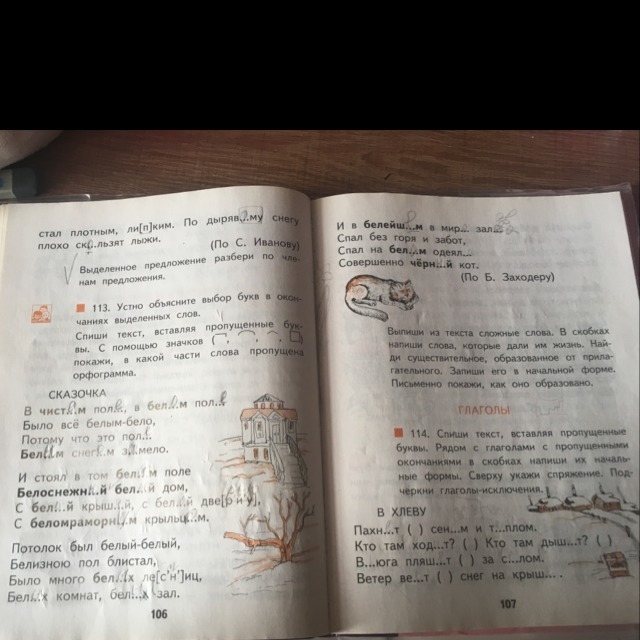 стал плотным, ли[п]ким. По дыряв...му снегу
плохо ск...льзят лыжи.
(По С. Иванову)
Выделенное предложение разбери по чле-
нам предложения.
113. Устно объясните выбор букв в окон-
чаниях выделенных слов.
Спиши текст, вставляя пропущенные бук-
вы. С помощью значков
покажи, в какой части слова пропущена
орфограмма.
СКАЗОЧКА
В чист...м пол..., в бел...м пол...
Было всё белым-бело,
Потому что это пол...
Бел...м снег...м з...мело.
И стоял в том бел...м поле
Белоснежн...й бел...й дом,
С бел...й крыш...й, с бел...й две[р'и]у],
С беломраморн...м крыльц...м.
Потолок был белый-белый,
Белизною пол блистал,
Было много бел...х ле[с'н']иц,
Бел...х комнат, бел...х зал.
106
И в белейш...м в мир... зал...
Спал без горя и забот,
Спал на бел...м одеял...
Совершенно чёрн...й кот.
(По Б. Заходеру)
Выпиши из текста сложные слова. В скобках
напиши слова, которые дали им жизнь. Най-
ди существительное, образованное от прила-
гательного. Запиши его в начальной форме.
Письменно покажи, как оно образовано.
ГЛАГОЛЫ
114. Спиши текст, вставляя пропущенные
буквы. Рядом с глаголами с пропущенными
окончаниями в скобках напиши их началь-
ные формы. Сверху укажи спряжение. Под-
черкни глаголы-исключения.
В ХЛЕВУ
Пахн...т ( ) сен...м и т...плом.
Кто там ход...т? ( ) Кто там дыш...т? ( )
В...юга пляш...т ( ) за с...лом.
Ветер ве...т ( ) снег на крыш... .
107